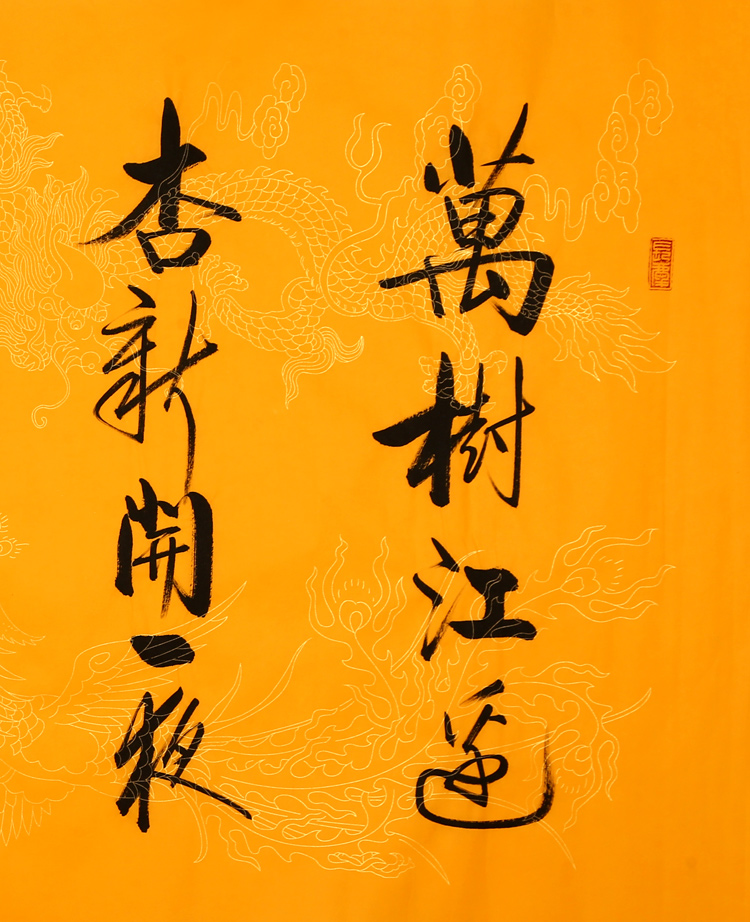 萬樹江邊
杏新開一夜